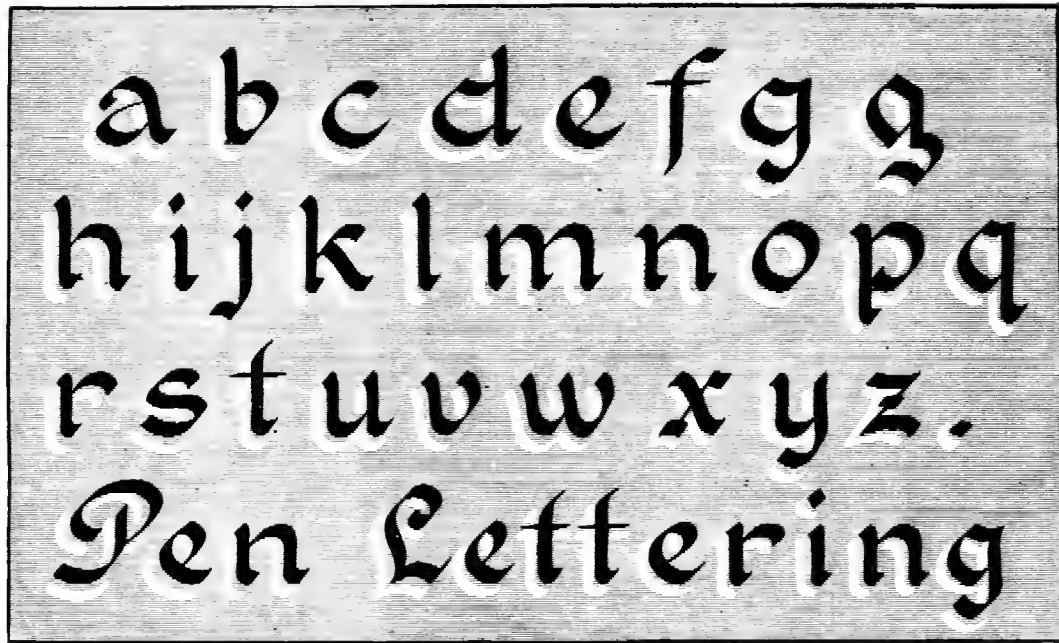 a b c d e f g g
h i j k l m n o p q
r s t u v w x y z .
Pen Lettering